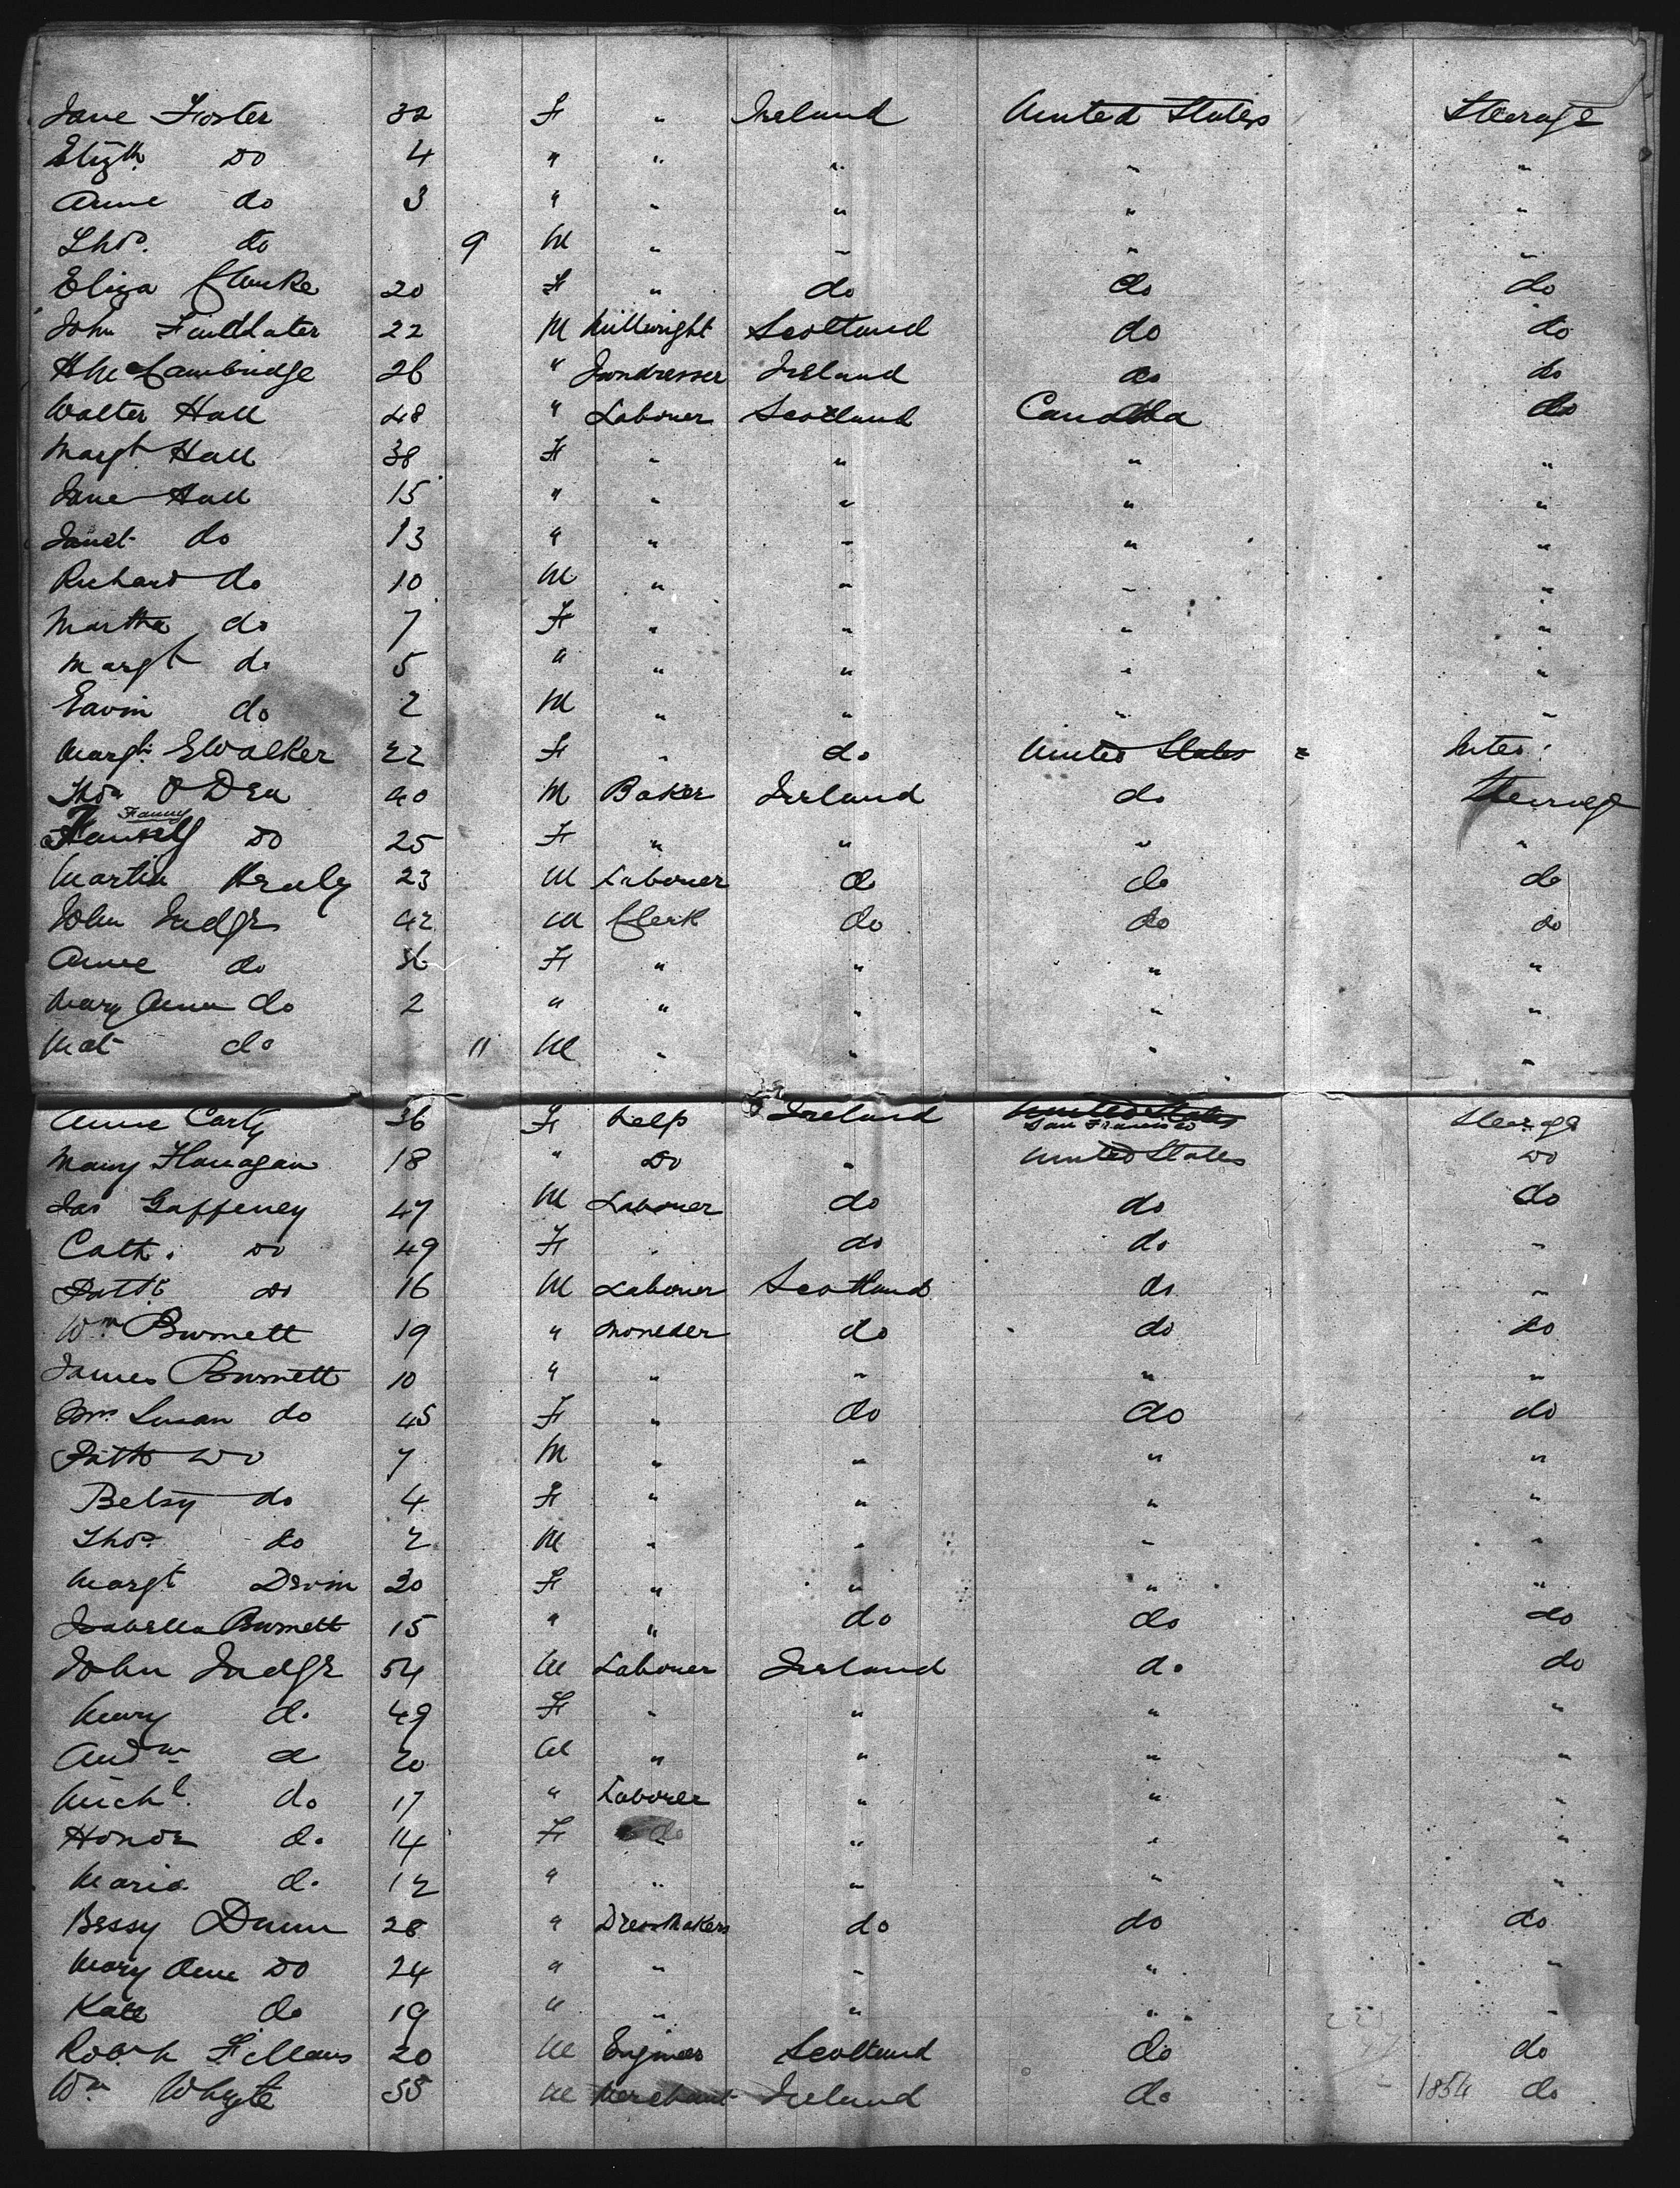 Jane Foster 32 F " Ireland United States Steerage
Elizth Do 4 " " " " "
Anne do 3 " " " " "
Thos. do 9 M " " " "
Eliza Clarke 20 F " do do do
John Findlater 22 M Millwright Scotland do do
Cambridge 26 " Irondresser Ireland do do
Walter Hall 48 " Laborer Scotland Canada do
Margt Hall 38 F " " " "
Jane Hall 15 " " " " "
Janet do 13 " " " " "
Richard do 10 M " " " "
Martha do 7 F " " " "
Margt do 5 " " " " "
Gavin do 2 M " " " "
Margt. E Walker 22 F " do United States = Inter:
Thos O Dea 40 M Baker Ireland do Steerage
Fanny
Do 25 F " " " "
Martin Healy 23 M Laborer do do do
John Judge 42 M Clerk do do do
Anne do 36 F " " " "
Mary Ann do 2 " " " " "
Mat do 11 M " " " "
Anne Carty 36 F Help Ireland United States Steerage
San Francisco
Mary Flanagan 18 " Do " United States Do
Jas Gaffeney 47 M Laborer do do do
Cath: Do 49 F " do do "
Pattk Do 16 M Laborer Scotland do "
Wm Burnett 19 " Moulder do do do
James Burnett 10 " " " " "
Mrs Susan do 45 F " do do do
Pattk Do 7 M " " " "
Betsy do 4 F " " " "
Thos. do 2 M " " " "
Margt Devin 30 F " " " "
Isabella Burnett 15 " " do do do
John Judge 54 M Laborer Ireland do do
Mary do 49 F " " " "
Andw do 20 M " " " "
Michl. do 17 " Laborer " " "
Honor do 14 F do " " "
Maria do 12 " " " " "
Bessy Dunn 28 " Dressmakers do do do
Mary Ann Do 24 " " " " "
Kate do 19 " " " " "
Robt Fillans 20 M Engineer Scotland do do
Wm Whyte 35 M Merchant Ireland do 1854 do